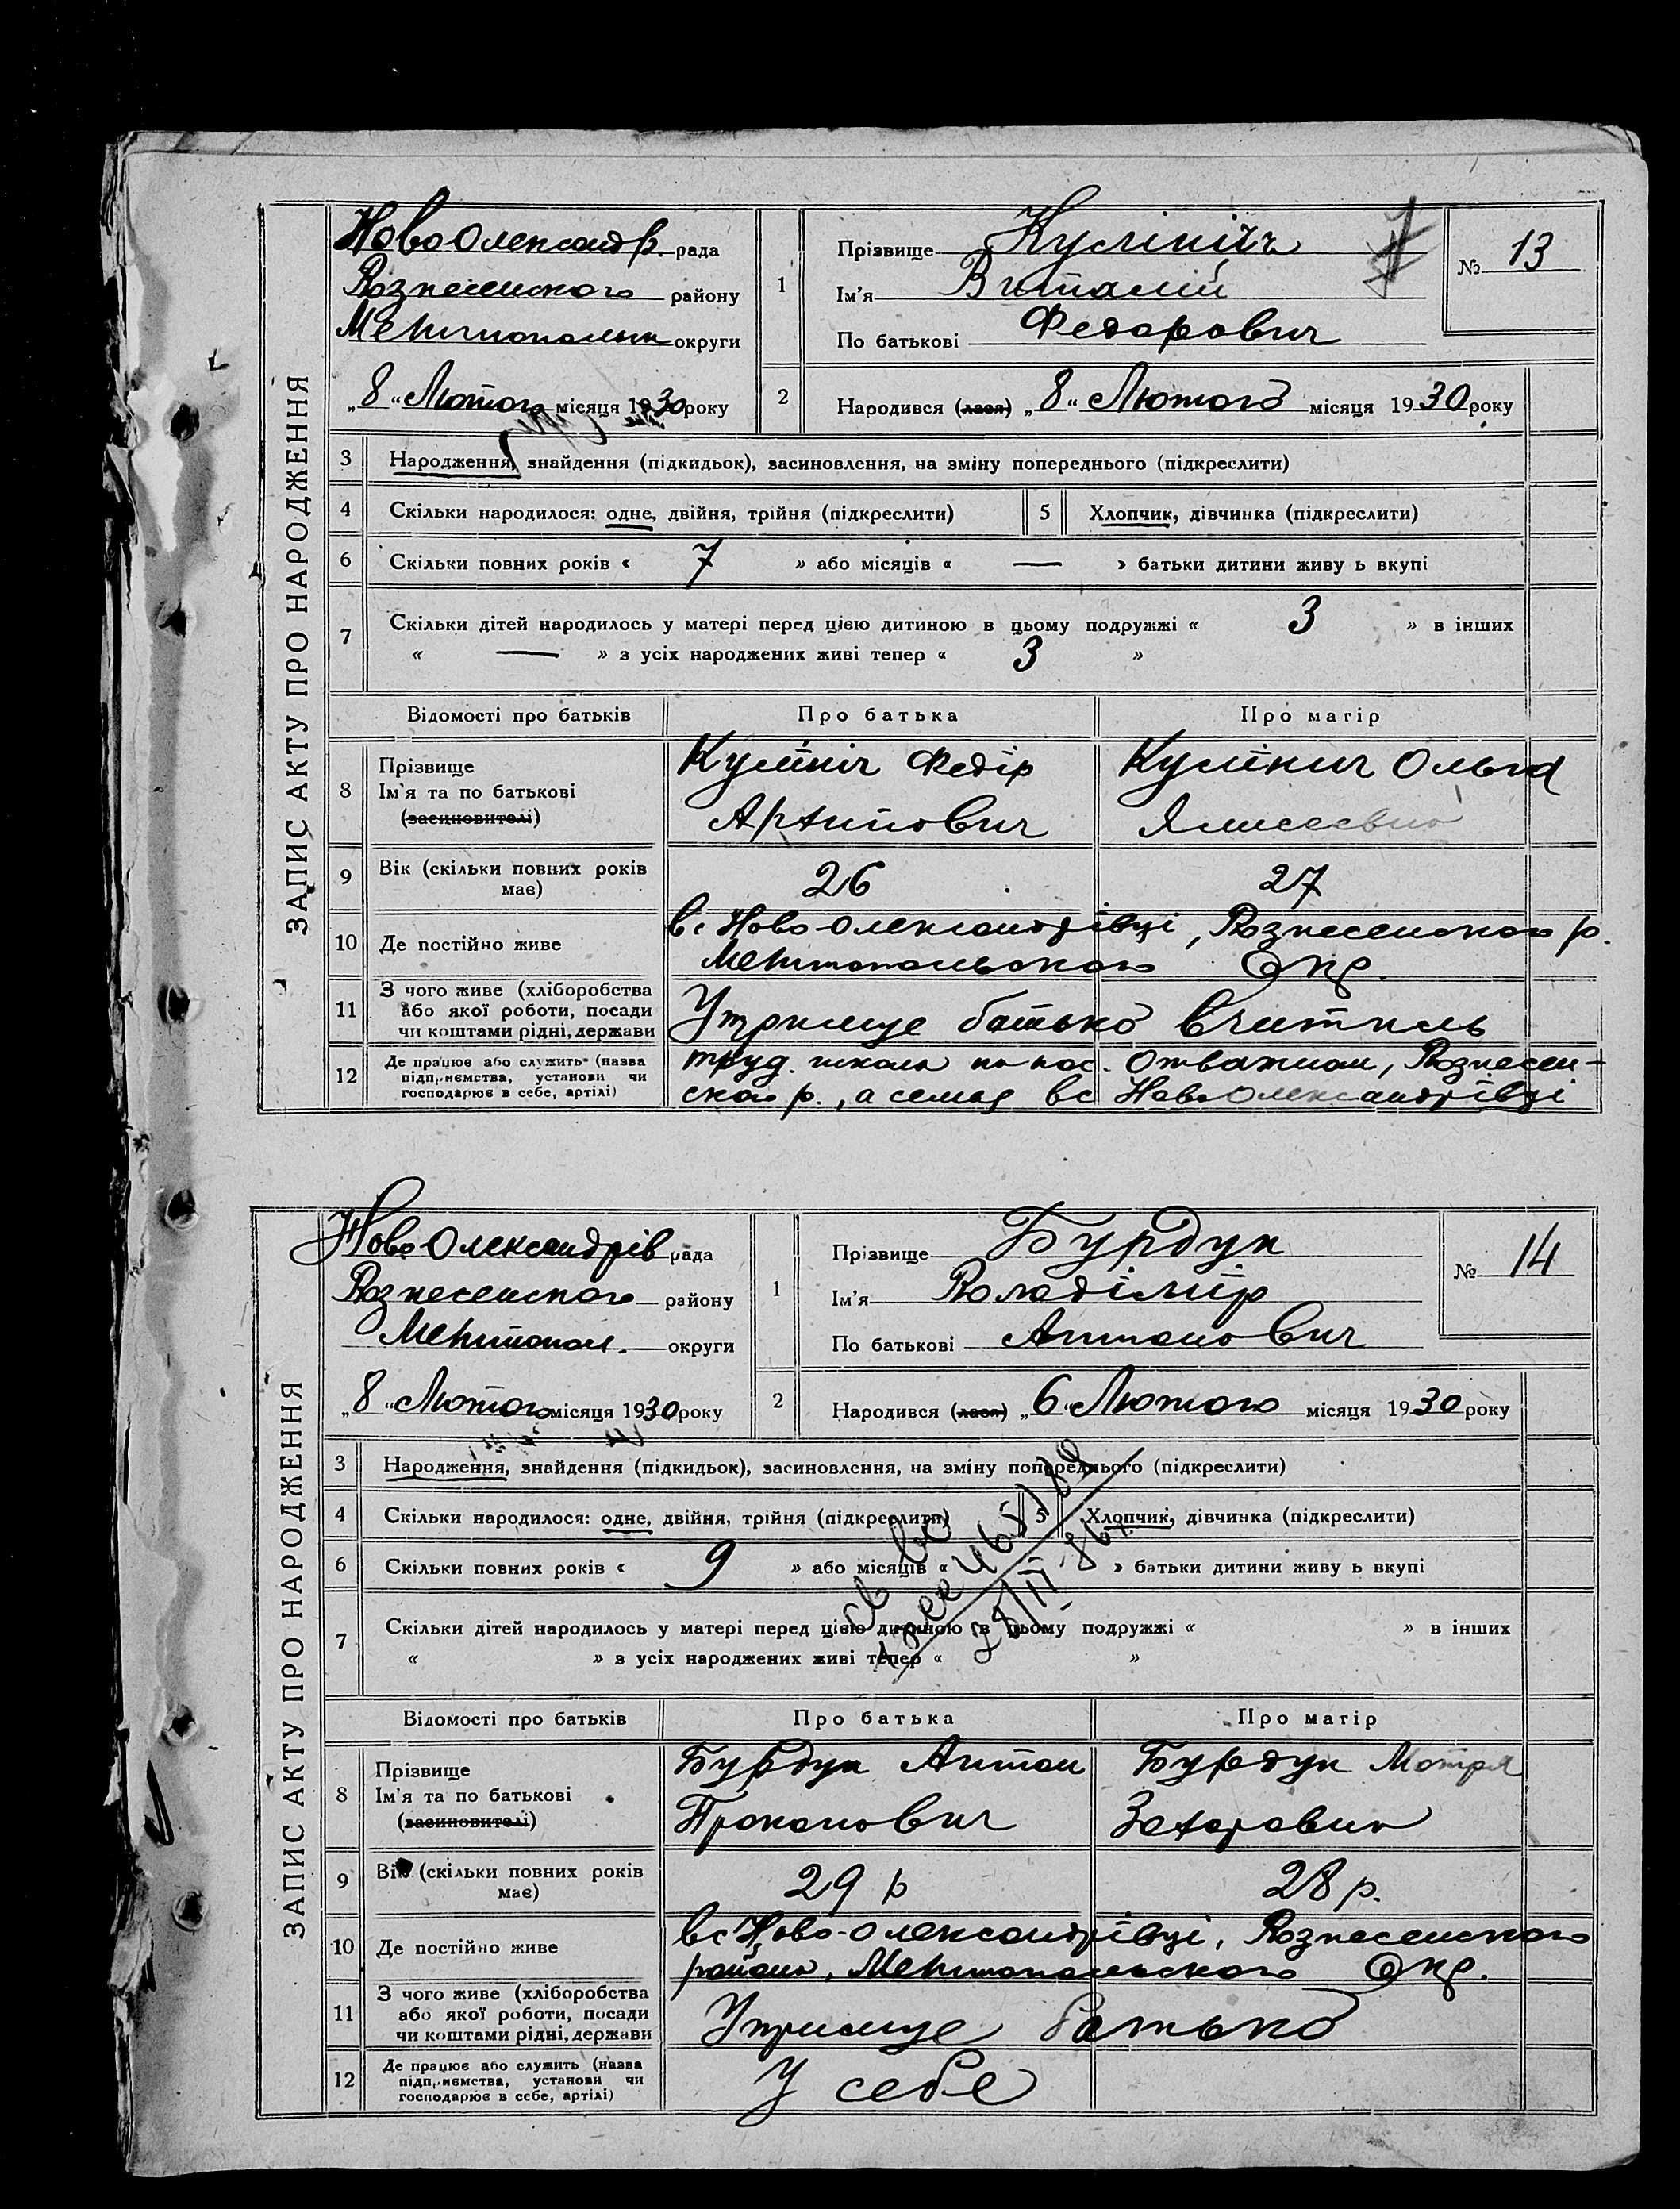 ЗАПИС АКТУ ПРО НАРОДЖЕННЯ
НовоОлександр. рада
Вознесенского району
Мелитопольск округи
„8“ Лютого місяця 1930 року
1
Прізвище Кулініч
Ім'я Виталій
По батькові Федорович
№ 13
2
Народився (лася) „8“ Лютого місяця 1930 року
3 Народження, знайдення (підкидьок), засиновлення, на зміну попереднього (підкреслити)
4 Скільки народилося: одне, двійня, трійня (підкреслити) 5 Хлопчик, дівчинка (підкреслити)
6 Скільки повних років « 7 » або місяців « — » батьки дитини живу ь вкупі
7 Скільки дітей народилось у матері перед цією дитиною в цьому подружжі « 3 » в інших
« — » з усіх народжених живі тепер « 3 »
Відомості про батьків Про батька Про матір
8 Прізвище
Ім'я та по батькові
(засиновителі)
Кулініч Федір
Артипович
Кулінич Ольга
9 Вік (скільки повних років
має)
26 27
10 Де постійно живе
вс Ново-Олександрівці, Вознесенского р.
Мелитопольского Окр.
11 З чого живе (хліборобства
або якої роботи, посади
чи коштами рідні, держави
Утримує батько вчитиль
12 Де працює або служить (назва
підприємства, установи чи
господарює в себе, артілі)
труд. школи Отважном, Вознесен-
ского р., а семья вс НовоОлександрівці
ЗАПИС АКТУ ПРО НАРОДЖЕННЯ
НовоОлександрів рада
Вознесенского району
Мелитопол. округи
„8“ Лютого місяця 1930 року
1
Прізвище Бурдун
Ім'я Володімір
По батькові Антонович
№ 14
2
Народився (лася) „6“ Лютого місяця 1930 року
3 Народження, знайдення (підкидьок), засиновлення, на зміну попереднього (підкреслити)
4 Скільки народилося: одне, двійня, трійня (підкреслити) 5 Хлопчик, дівчинка (підкреслити)
6 Скільки повних років « 9 » або місяців « » батьки дитини живу ь вкупі
7 Скільки дітей народилось у матері перед цією дитиною в цьому подружжі « » в інших
« » з усіх народжених живі тепер « »
Відомості про батьків Про батька Про матір
8 Прізвище
Ім'я та по батькові
(засиновителі)
Бурдун Антон
Прокопович
Бурдун Мотря
Захаровна
9 Вік (скільки повних років
має)
29 р 28 р.
10 Де постійно живе
вс Ново-Олександрівці, Вознесенского
району, Мелитопольского Окр.
11 З чого живе (хліборобства
або якої роботи, посади
чи коштами рідні, держави
Утримує батько
12 Де працює або служить (назва
підприємства, установи чи
господарює в себе, артілі)
У себе